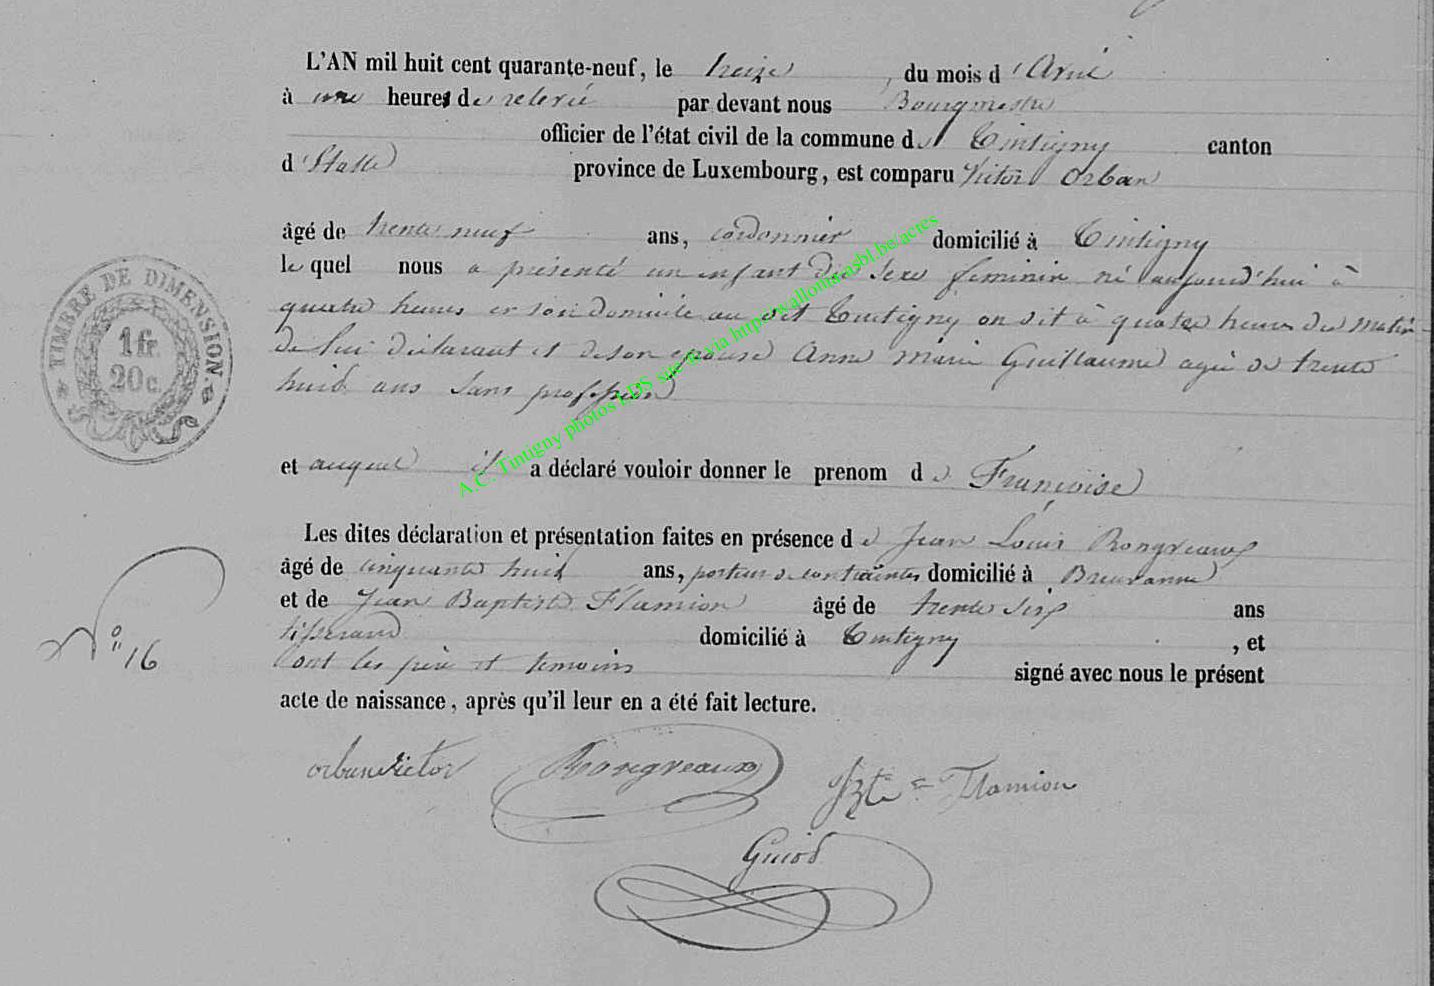 L'AN mil huit cent quarante-neuf, le treize du mois d'Avril
à une heure de relevée par devant nous Bourgmestre
officier de l'état civil de la commune de Tintigny canton
d'Etalle province de Luxembourg, est comparu Victor Orban
âgé de trente neuf ans, cordonnier domicilié à Tintigny
lequel nous a présenté un enfant du sexe féminin né aujourd'hui à
quatre heures en son domicile au dit Tintigny on dit à quatre heures du matin
de lui déclarant et de son épouse Anne Marie Guillaume agée de trente
huit ans sans profession
et auquel il a déclaré vouloir donner le prenom de Françoise
Les dites déclaration et présentation faites en présence de Jean Louis Rongveaux
âgé de cinquante huit ans, porteur de contraintes domicilié à Breuvanne
et de Jean Baptiste Flamion âgé de trente six ans
tisserand domicilié à Tintigny, et
ont les père et temoins signé avec nous le présent
acte de naissance, après qu'il leur en a été fait lecture.
N° 16
TIMBRE DE DIMENSION.
1 fr.
20 c.
orban victor Rongveaux JBte Flamion
Guiod
A.C. Tintigny photos LDS site & via http://wallonia-asbl.be/acres